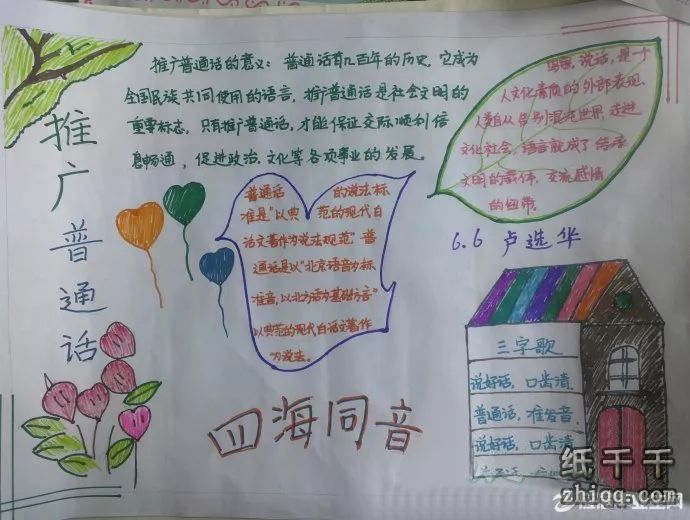 推广普通话
推广普通话的意义：普通话有几百年的历史，它成为
全国民族共同使用的语言，推广普通话是社会文明的
重要标志，只有推广普通话，才能保证交际顺利信
息畅通，促进政治、文化等各项事业的发展。
说话，是一个
人文化素质的外部表现，
人类自从告别混沌世界，走进
文化社会，语言就成了传承
文明的载体，交流感情
的纽带
普通话的说法标
准是"以典范的现代白
话文著作为说法规范"普
通话是以"北京语音为标
准音，以北方话为基础方言"
以典范的现代白话文著作
为说法。
6.6 卢选华
三字歌
说好话，口齿清
普通话，准发音，
说好话，口齿清
四海同音
纸千千
zhiqq.com